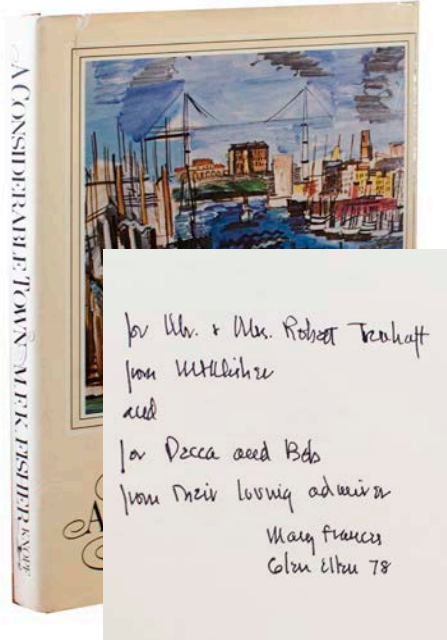 A CONSIDERABLE TOWN M.F.K. FISHER KNOPF
for Mr. & Mrs. Robert Treuhaft
from MFKFisher
and
for Decca and Bob
from their loving admirer
Mary Frances
Glen Ellen 78